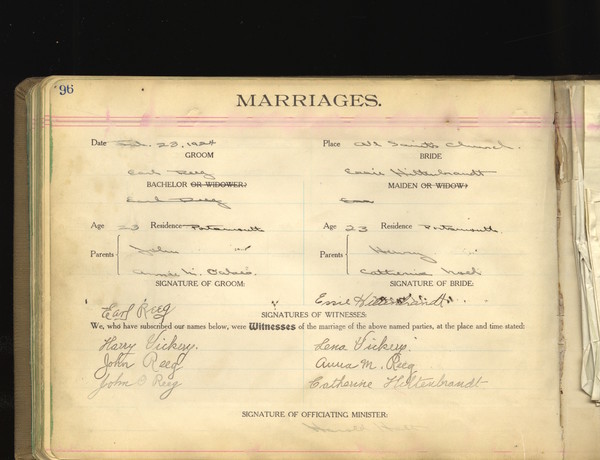 96
MARRIAGES.
Date Feb. 23, 1924 Place All Saints Church.
GROOM BRIDE
Earl Reeg Essie Hiltenbrandt
BACHELOR OR WIDOWER: MAIDEN OR WIDOW:
Earl Reeg
Age 23 Residence Portsmouth Age 23 Residence Portsmouth.
Parents John Parents Henry
Anna M. Catherine
SIGNATURE OF GROOM: SIGNATURE OF BRIDE:
Earl Reeg Essie Hiltenbrandt
SIGNATURES OF WITNESSES:
We, who have subscribed our names below, were Witnesses of the marriage of the above named parties, at the place and time stated:
Harry Vickery. Lena Vickery.
John Reeg Anna M. Reeg
John Reeg Catherine Hiltenbrandt
SIGNATURE OF OFFICIATING MINISTER: